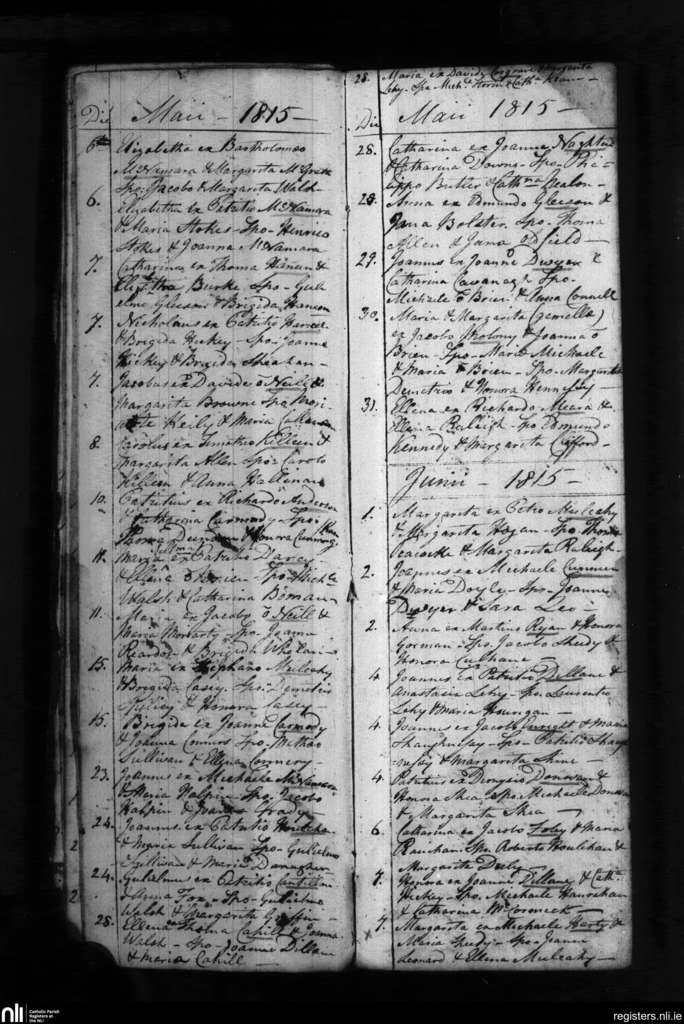 Die Maii - 1815 -
6th Elizabetha ex Bartholomeo
McNamara & Margarita McGrath
Spo: Jacobo & Margarita Walsh -
6. Elizabetha ex Patritio McNamara
& Maria Stokes - Spo - Henrico
Stokes & Joanna McNamara
7. Catharina ex Thoma &
Burke Spo - Guli
elmo Gleeson & Brigida
7. Nicholaus ex Patritio
& Brigida Hickey - Spo - Joanne
Hickey & Brigida Sheahan -
7. Jacobus ex Davide ō Neill &
Margarita Browne Spo
Heily & Maria
8. Carolus ex Timotheo Killeen &
Margarita Allen Spo: Carolo
Killeen & Anna Hallinan
10. Patritius ex Richardo Anderson
& Catharina Carmody - Spo:
Thoma & Honora
11. Maria ex Patritio Darcy
& Ellena ō Brien - Spo - Michle
Walsh & Catharina
11. Maria ex Jacobo ō Neill &
Maria Moriarty Spo - Joanne
Reardon & Brigida Whelan
15. Maria ex Stephano Mulcahy
& Brigida Casey Spo: Demetrio
& Honora Casey -
15. Brigida ex Joanne Carmody
& Joanna Connors Spo - Mathao
Sullivan & Ellena Connery -
23. Joannes ex Michaele McNamara
& Maria Halpin - Spo Jacobo
Halpin & Joanna Grady -
24. Joannes ex Patritio Houlihan
& Maria Sullivan Spo - Gulielmo
Sullivan & Maria Danagher
24. Gulielmus ex Patritio Cantillon
& Anna Fox - Spo - Gulielmo
Walsh & Margarita Griffin -
28. Ellena ex Thoma Cahill & Joanna
Walsh - Spo - Joanne Dillane
& Maria Cahill -
28. Maria ex Davide & Margarita
Lehy - Spo Michle & Cathna
Die Maii 1815 -
28. Catharina ex Joanne Naghten
& Catharina Downs - Spo - Phi-
lippo Butler & Cathna Nealon -
28. Anna ex Edmundo Gleeson &
Jana Bolster Spo - Thoma
Allen & Jana Oldfield -
29. Joannes ex Joanne Dwyer &
Catharina Cavanagh Spo -
Michaele ō Brien & Anna Connell
30. Maria & Margarita (gemellæ)
ex Jacobo & Joanna ō
Brien - Spo - Mariæ Michaele
& Maria ō Brien - Spo - Margaritæ
Demetrio & Honora Hennessy -
31. Ellena ex Richardo Meara &
Ellena Raleigh - Spo Edmundo
Kennedy & Margarita Clifford -
Junii - 1815 -
1. Margarita ex Petro Mulcahy
& Margarita Hogan - Spo Thoma
Peacocke & Margarita Raleigh -
2. Joannes ex Michaele
& Maria Doyle - Spo - Joanne
Dwyer & Sara Leo -
2. Anna ex Martino Ryan & Honora
Gorman - Spo. Jacobo Sheedy &
Honora Culhane
4. Joannes ex Patritio Dillane &
Anastasia Lehy - Spo. Laurentio
Lehy & Maria Hourigan -
4. Joannes ex Jacobo Enright & Maria
Shaughnesay - Spo - Patritio Shaugh
nesay & Margarita Shine -
4. Patritius ex Dionysio Donovan &
Honora Shea, Spo Michaele Donovan
& Margarita Shea
6. Catharina ex Jacobo Foley & Maria
Spo Roberto Houlihan &
Margarita
7. Honora ex Joanne Dillane & Cathna
Hickey - Spo, Michaele Hanrahan
& Catharina McCormick -
7. Margarita ex Michaele Harty &
Maria Sheedy - Spo - Joanne
Leonard & Ellena Mulcahy -
nli Catholic Parish Registers at the NLI
registers.nli.ie